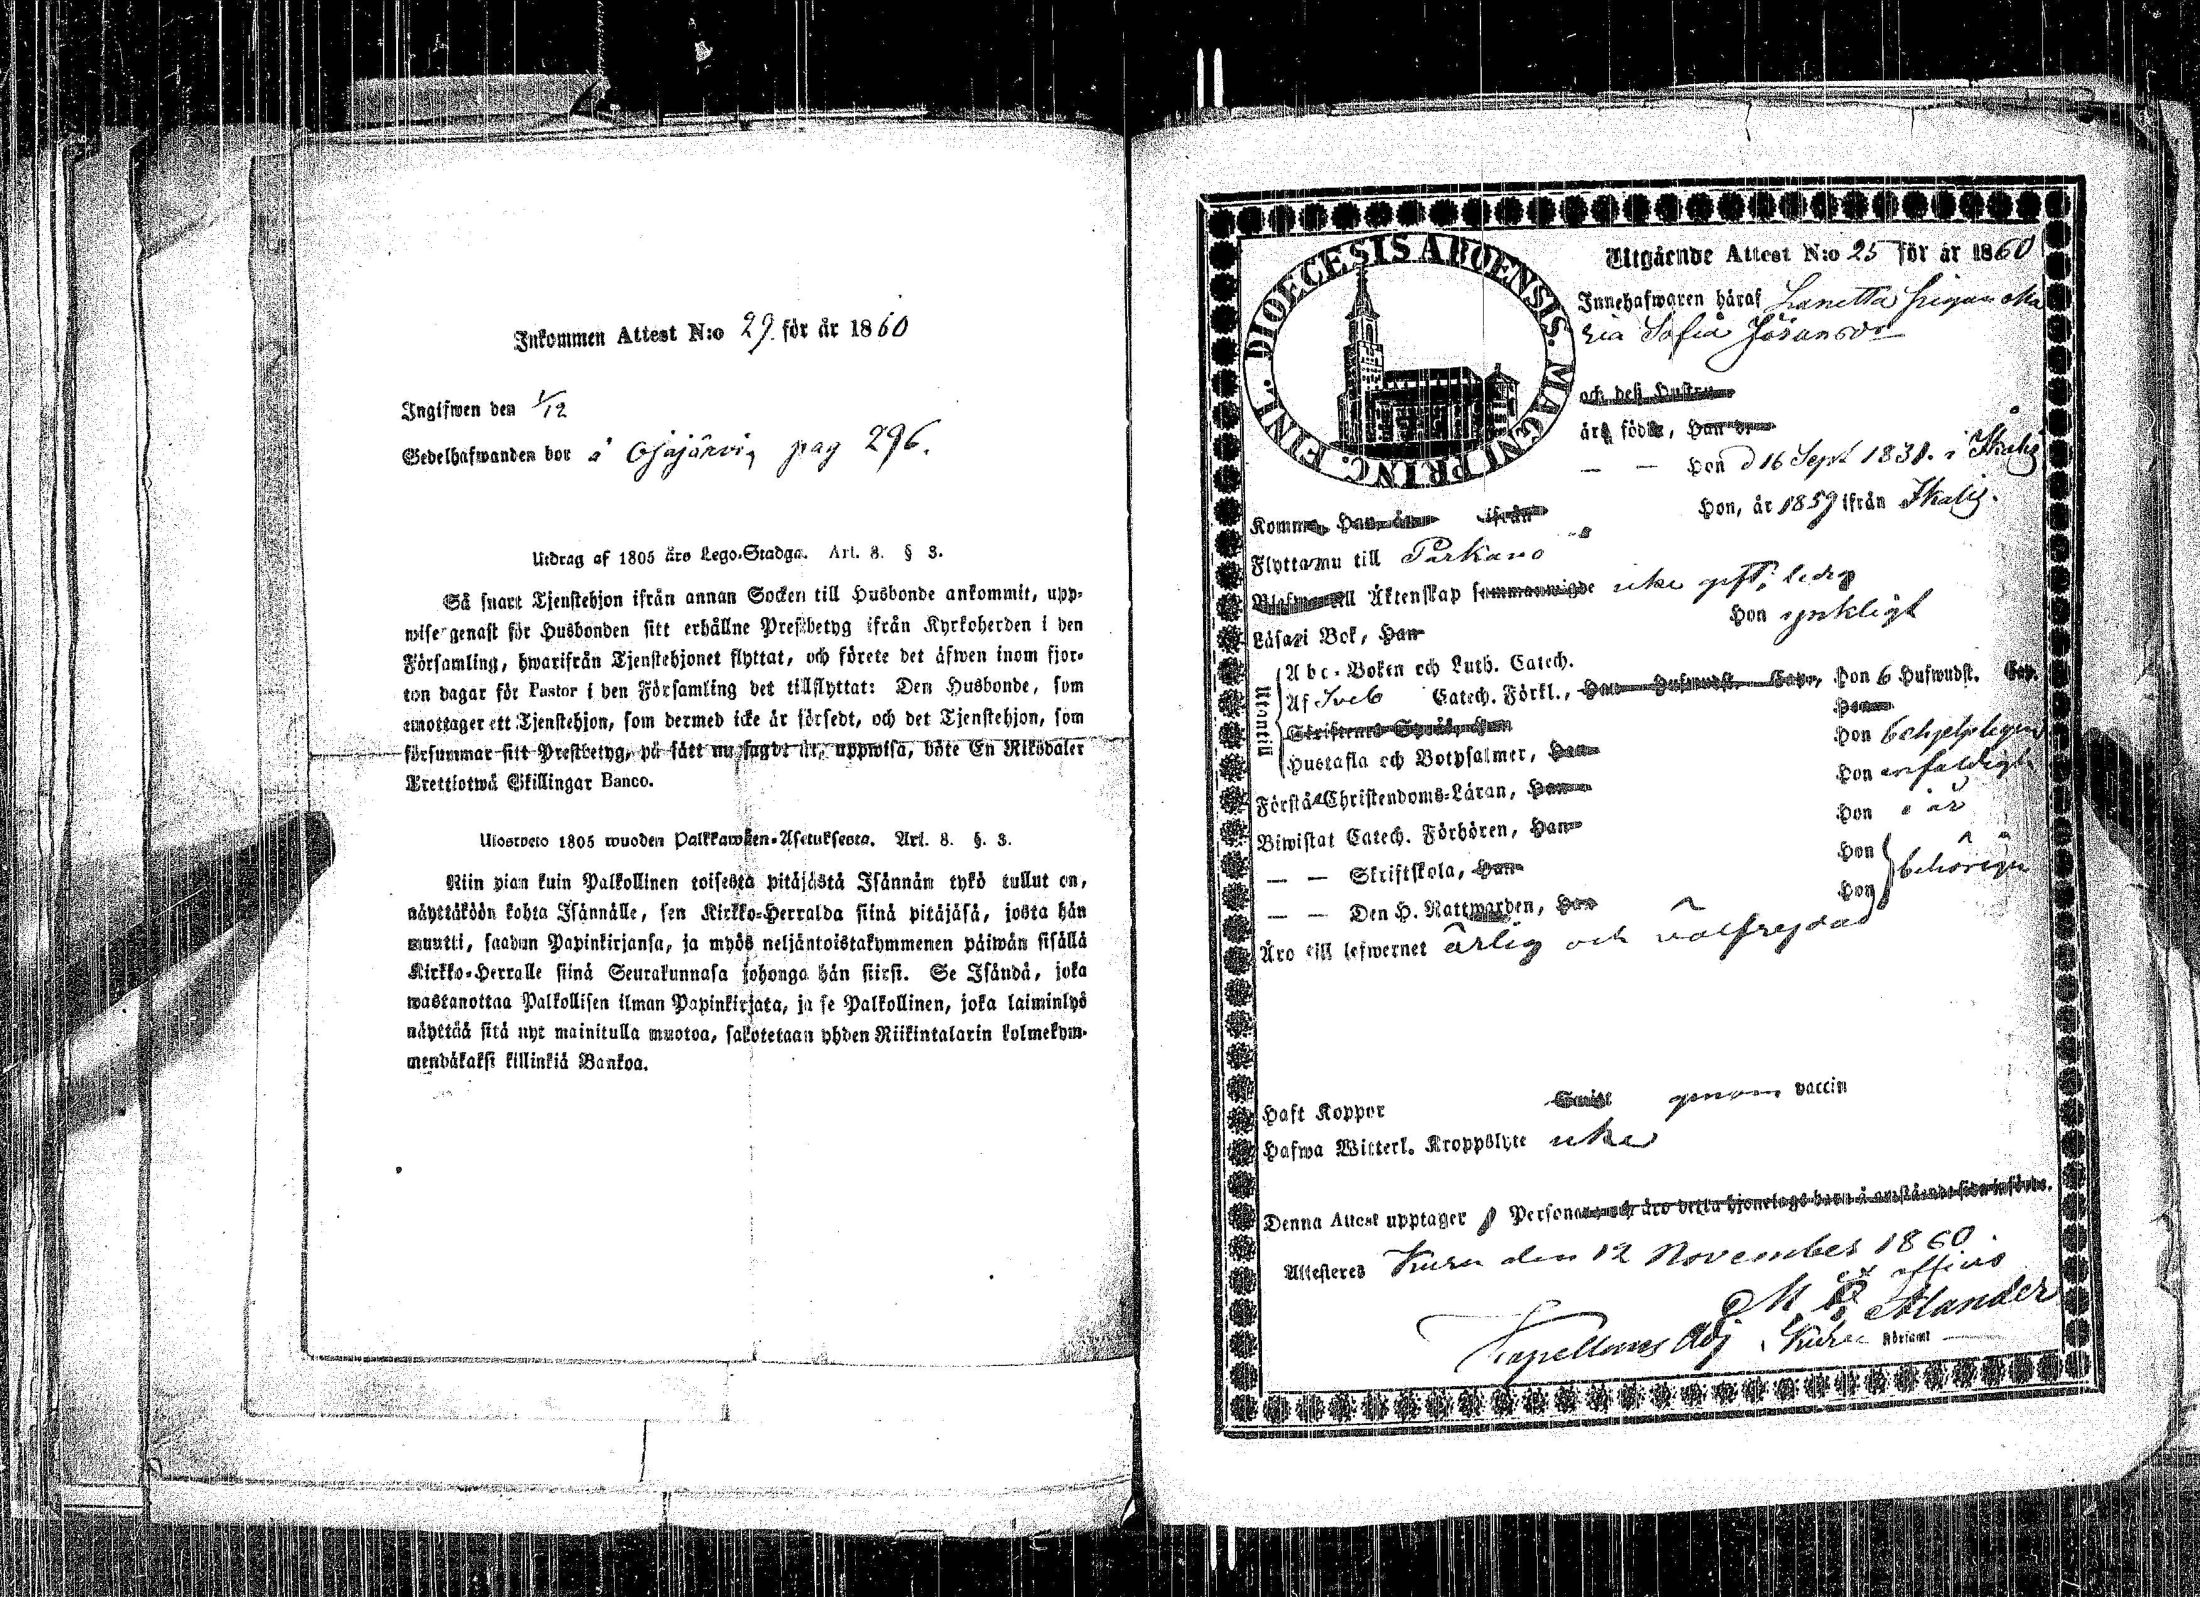 Inkommen Attest N:o 29. för år 1860
Ingifwen den 1/12
Sedelhafwanden bor å Ojajärvi, pag 296.
Utdrag af 1805 års Lego-Stadga. Art. 8. § 3.
Så snart Tjenstehjon ifrån annan Socken till Husbonde ankommit, upp-
wise genast för Husbonden sitt erhållne Prestbetyg ifrån Kyrkoherden i den
Församling, hwarifrån Tjenstehjonet flyttat, och förete det äfwen inom fjor-
ton dagar för Pastor i den Församling det tillflyttat: Den Husbonde, som
emottager ett Tjenstehjon, som dermed icke är försedt, och det Tjenstehjon, som
försummar sitt Prestbetyg, på sätt nu sagdt är, uppwisa, böte En Riksdaler
Trettiotwå Skillingar Banco.
Ulosweto 1805 wuoden Palkkawäen-Asetuksesta. Art. 8. §. 3.
Niin pian kuin Palkollinen toisesta pitäjästä Isännän tykö tullut on,
näyttäköön kohta Isännälle, sen Kirkko-Herralda siinä pitäjäsä, josta hän
muutti, saadun Papinkirjansa, ja myös neljäntoistakymmenen päiwän sisällä
Kirkko-Herralle siinä Seurakunnasa johonga hän siirsi. Se Isändä, joka
wastanottaa Palkollisen ilman Papinkirjata, ja se Palkollinen, joka laiminlyö
näyttää sitä nyt mainitulla muotoa, sakotetaan yhden Riikintalarin kolmekym-
mendäkaksi killinkiä Bankoa.
DIOECESIS ABOENSIS. MAGNI PRINC. FINL.
Utgående Attest N:o 25 för år 1860
Innehafwaren häraf Ma
ria Sofia
och deß Hustru
äro födde, Han den
— — Hon d 16 Sept 1838. i Ikalis
Komma, Han, åren ifrån Hon, år 1859 ifrån Ikalis.
Flytta nu till Parkano
till Äktenskap sammanwigde icke gift; ledig
Läsa i Bok, Han Hon ynkligt
Utantill
Abc-Boken och Luth. Catech.
Af Sveb Catech. Förkl., Han Hufwudst. Cap., Hon 6 Hufwudst. Cap.
Skriftenes Språk,
Hustafla och Botpsalmer, Han Hon behjelpligen
Förstå Christendoms-Läran, Han Hon enfaldigt
Biwistat Catech. Förhören, Han Hon i år
— — Skriftskola, Han Hon
— — Den H. Nattwarden, Han Hon behörigen
Äro till lefwernet ärlig och välfrejdad
Haft Koppor Smitt genom vaccin
Hafwa Witterl. Kroppslyte icke
Denna Attest upptager 1 Personer och äro detta hjonelags barn å omstående sida införde.
Attesteres Kuru den 12 November 1860
ex officio
Alander
Capellans Adj i Kuru Församl